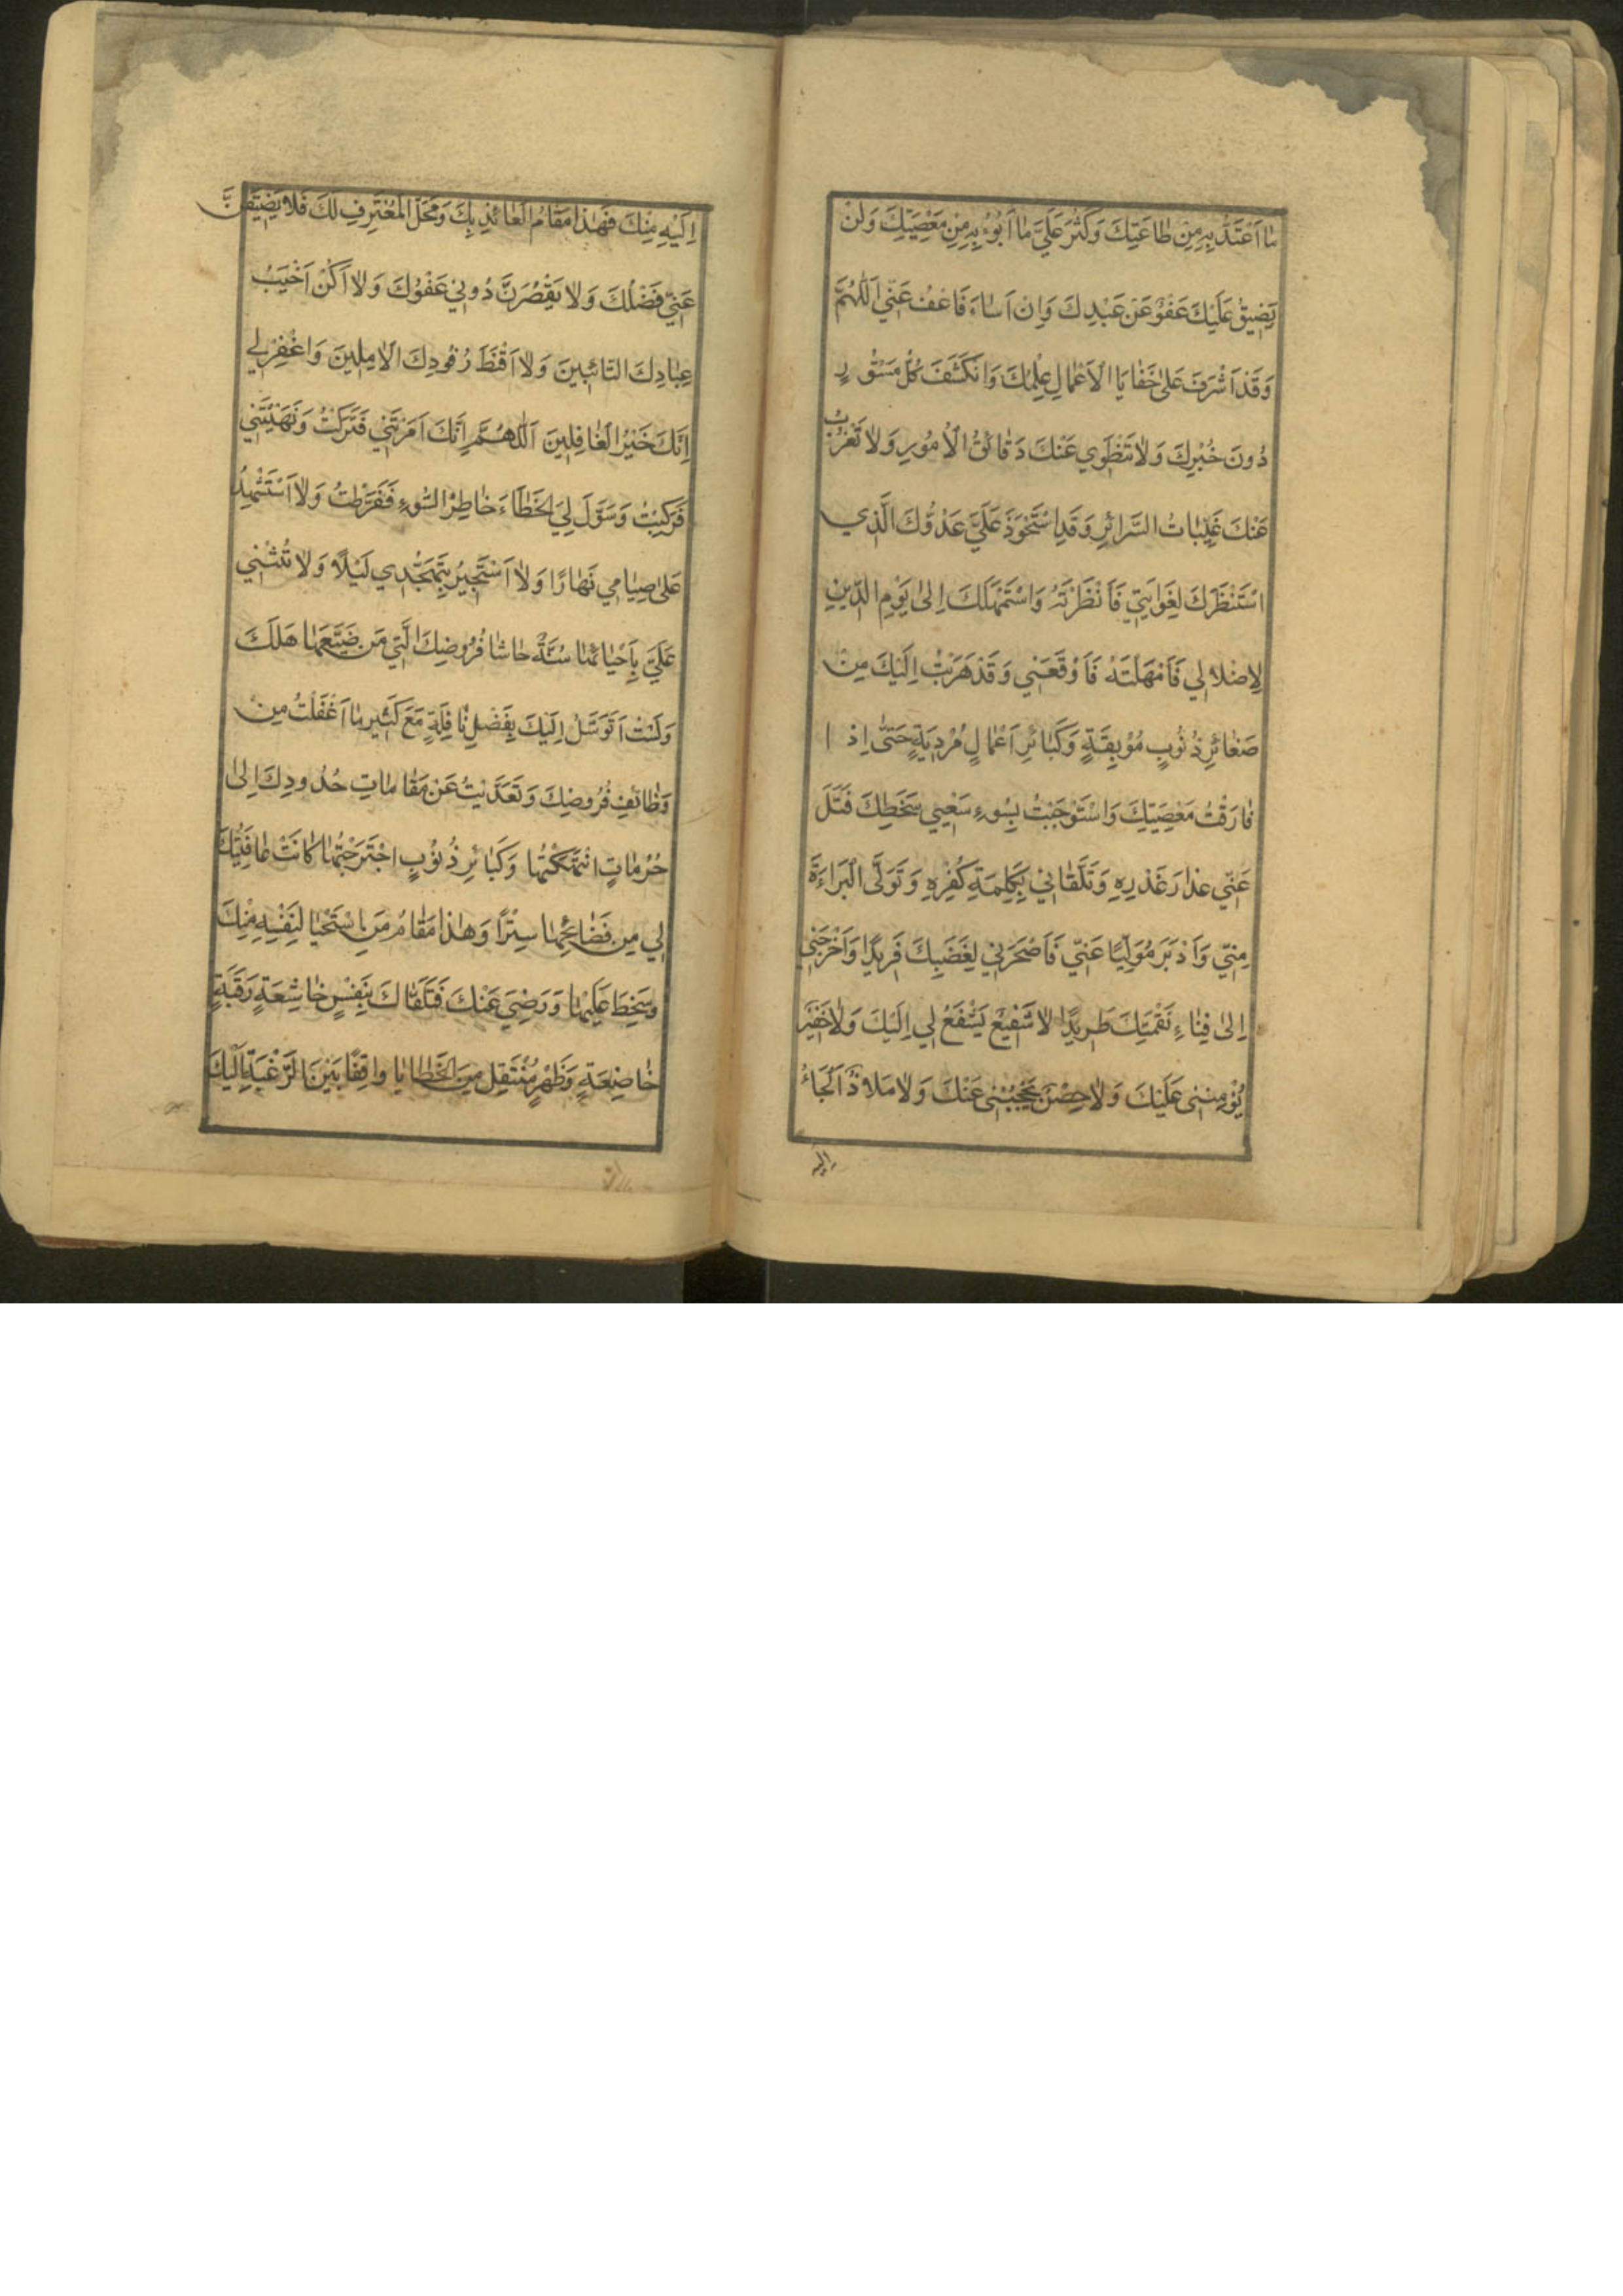 مٰا اَعْتَدُّ بِهِ مِنْ طٰاعَتِكَ وَكَثُرَ عَلَيَّ مٰا اَبُوْءُ بِهِ مِنْ مَعْصِيَتِكَ وَلَنْ
يَضِيقَ عَلَيْكَ عَفْوٌ عَنْ عَبْدِكَ وَاِنْ اَسٰاءَ فَاعْفُ عَنّي اَللّٰهُمَّ
وَقَدْ اَشْرَفَ عَلٰى خَفٰايَا الْاَعْمٰالِ عِلْمُكَ وَانْكَشَفَ كُلُّ مَسْتُورٍ
دُونَ خُبْرِكَ وَلٰا تَنْطَوي عَنْكَ دَقٰائِقُ الْاُمُورِ وَلٰا تَعْزُبُ
عَنْكَ غَيِّبٰاتُ السَّرٰائِرِ وَقَدِ اسْتَحْوَذَ عَلَيَّ عَدُوُّكَ الَّذي
اسْتَنْظَرَكَ لِغَوٰايَتي فَاَنْظَرْتَهُ وَاسْتَمْهَلَكَ اِلٰى يَوْمِ الدّينِ
لِاِضْلٰالي فَاَمْهَلْتَهُ فَاَوْقَعَني وَقَدْ هَرَبْتُ اِلَيْكَ مِنْ
صَغٰائِرِ ذُنُوبٍ مُوْبِقَةٍ وَكَبٰائِرِ اَعْمٰالٍ مُرْدِيَةٍ حَتّٰى اِذ ا
فٰارَقْتُ مَعْصِيَتَكَ وَاسْتَوْجَبْتُ بِسُوءِ سَعْيي سَخَطَكَ فَتَلَ
عَنّي عِذٰارَ غَدْرِهِ وَتَلَقّٰاني بِكَلِمَةِ كُفْرِهِ وَتَوَلَّى الْبَرٰاءَةَ
مِنّي وَاَدْبَرَ مُوَلِّيًا عَنّي فَاَصْحَرَني لِغَضَبِكَ فَريدًا وَاَخْرَجَني
اِلٰى فِنٰاءِ نَقِمَتِكَ طَريدًا لٰا شَفيعٌ يَشْفَعُ لي اِلَيْكَ وَلٰا خَفيرٌ
يُؤْمِنُني عَلَيْكَ وَلٰا حِصْنٌ يَحْجُبُني عَنْكَ وَلٰا مَلٰاذٌ اَلْجَاُ
اليه
اِلَيْهِ مِنْكَ فَهٰذٰا مَقٰامُ الْعٰائِذِ بِكَ وَمَحَلُّ الْمُعْتَرِفِ لَكَ فَلٰا يَضيقَنَّ
عَنّي فَضْلُكَ وَلٰا يَقْصُرَنَّ دُوني عَفْوُكَ وَلٰا اَكُنْ اَخْيَبَ
عِبٰادِكَ التّٰائِبينَ وَلٰا اَقْنَطَ وُفُودِكَ الْاٰمِلينَ وَاغْفِرْ لي
اِنَّكَ خَيْرُ الْغٰافِلينَ اَللّٰهُمَّ اِنَّكَ اَمَرْتَني فَتَرَكْتُ وَنَهَيْتَني
فَرَكِبْتُ وَسَوَّلَ لِيَ الْخَطٰاءَ خٰاطِرُ السُّوءِ فَفَرَّطْتُ وَلٰا اَسْتَشْهِدُ
عَلٰى صِيٰامي نَهٰارًا وَلٰا اَسْتَجيرُ بِتَهَجُّدي لَيْلًا وَلٰا تُثْني
عَلَيَّ بِاِحْيٰائِهٰا سُنَّةٌ حٰاشٰا فُرُوضِكَ الَّتي مَنْ ضَيَّعَهٰا هَلَكَ
وَلَسْتُ اَتَوَسَّلُ اِلَيْكَ بِفَضْلِ نٰافِلَةٍ مَعَ كَثيرِ مٰا اَغْفَلْتُ مِنْ
وَظٰائِفِ فُرُوضِكَ وَتَعَدَّيْتُ عَنْ مَقٰامٰاتِ حُدُودِكَ اِلٰى
حُرُمٰاتٍ انْتَهَكْتُهٰا وَكَبٰائِرِ ذُنُوبٍ اجْتَرَحْتُهٰا كٰانَتْ عٰافِيَتُكَ
لي مِنْ فَضٰائِحِهٰا سِتْرًا وَهٰذٰا مَقٰامُ مَنِ اسْتَحْيٰا لِنَفْسِهِ مِنْكَ
وَسَخِطَ عَلَيْهٰا وَرَضِيَ عَنْكَ فَتَلَقّٰاكَ بِنَفْسٍ خٰاشِعَةٍ وَرَقَبَةٍ
خٰاضِعَةٍ وَظَهْرٍ مُثْقَلٍ مِنَ الْخَطٰايٰا وٰاقِفًا بَيْنَ الرَّغْبَةِ اِلَيْكَ